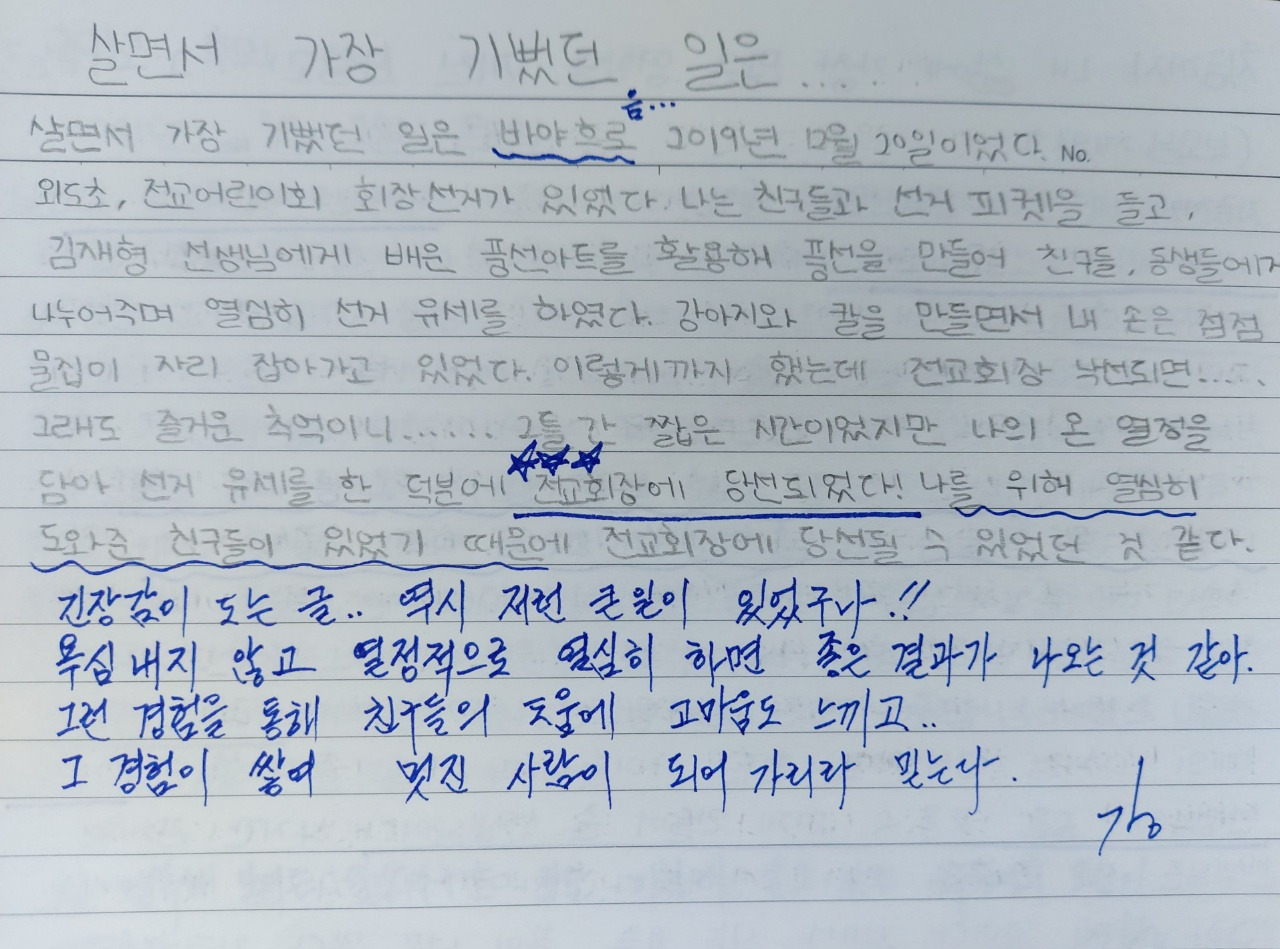 살면서 가장 기뻤던 일은......
음...
살면서 가장 기뻤던 일은 바야흐로 2019년 12월 20일이었다. No.
외도초, 전교어린이회 회장선거가 있었다. 나는 친구들과 선거 피켓을 들고,
김재형 선생님에게 배운 풍선아트를 활용해 풍선을 만들어 친구들, 동생들에게
나누어주며 열심히 선거 유세를 하였다. 강아지와 칼을 만들면서 내 손은 점점
물집이 자리 잡아가고 있었다. 이렇게까지 했는데 전교회장 낙선되면.....
그래도 즐거운 추억이니...... 그틀 간 짧은 시간이었지만 나의 온 열정을
담아 선거 유세를 한 덕분에 전교회장에 당선되었다! 나를 위해 열심히
도와준 친구들이 있었기 때문에 전교회장에 당선될 수 있었던 것 같다.
긴장감이 도는 글.. 역시 저런 큰일이 있었구나!!
욕심내지 않고 열정적으로 열실히 하면 좋은 결과가 나오는 것 같아.
그런 경험을 통해 친구들의 도움에 고마움도 느끼고..
그 경험이 쌓여 멋진 사람이 되어 가리라 믿는다.
김